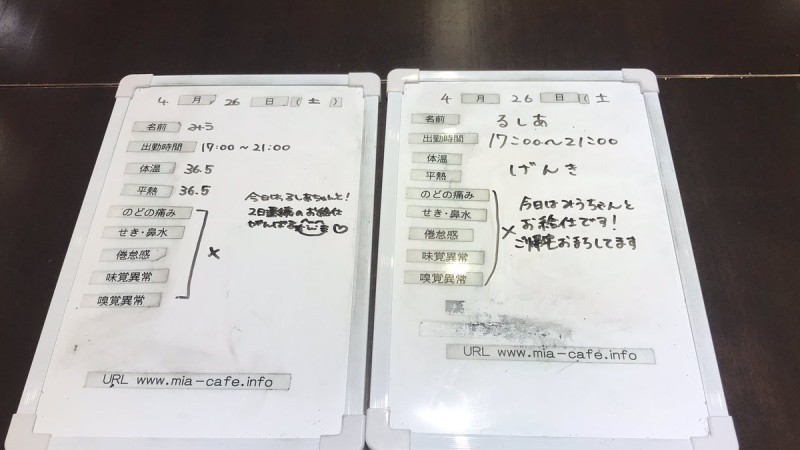 4 月 26 日 ( 土 )
名前 みう
出勤時間 17:00～21:00
体温 36.5
平熱 36.5
のどの痛み
せき・鼻水
倦怠感
味覚異常
嗅覚異常
×
今日はるしあちゃんと!
2日連続のお給仕
がんばる
URL www.mia-cafe.info
4 月 26 日 ( 土
名前 るしあ
出勤時間 17:00～21:00
体温
平熱 げんき
のどの痛み
せき・鼻水
倦怠感
味覚異常
嗅覚異常
×
今日はみうちゃんと
お給仕です!
ご帰宅おまちしてます
URL www.mia-cafe.info